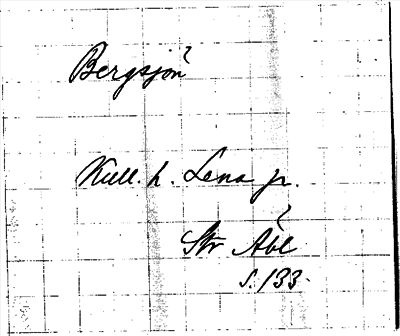 Bergsjön
Kull. h. Lena sn.
Str Äbl
s. 133.